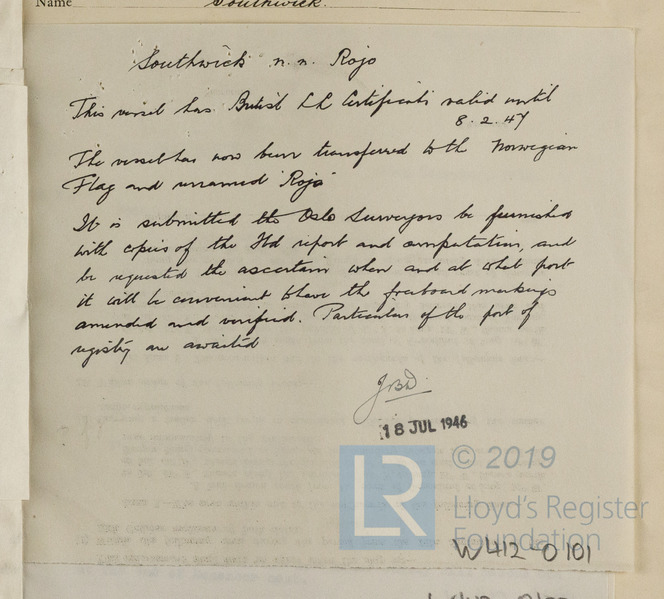 Name Southwick.
Southwick n.n. Rojo
This vessel has British LL Certificate valid until
8.2.47
The vessel has now been transferred to the Norwegian
Flag and renamed "Rojo"
It is submitted the Oslo Surveyors be furnished
with copies of the Fbd report and computation, and
be requested to ascertain when and at what port
it will be convenient to have the freeboard markings
amended and verified. Particulars of the port of
registry are awaited
18 JUL 1946
© 2019
LR
Lloyd's Register
Foundation
W412-0101